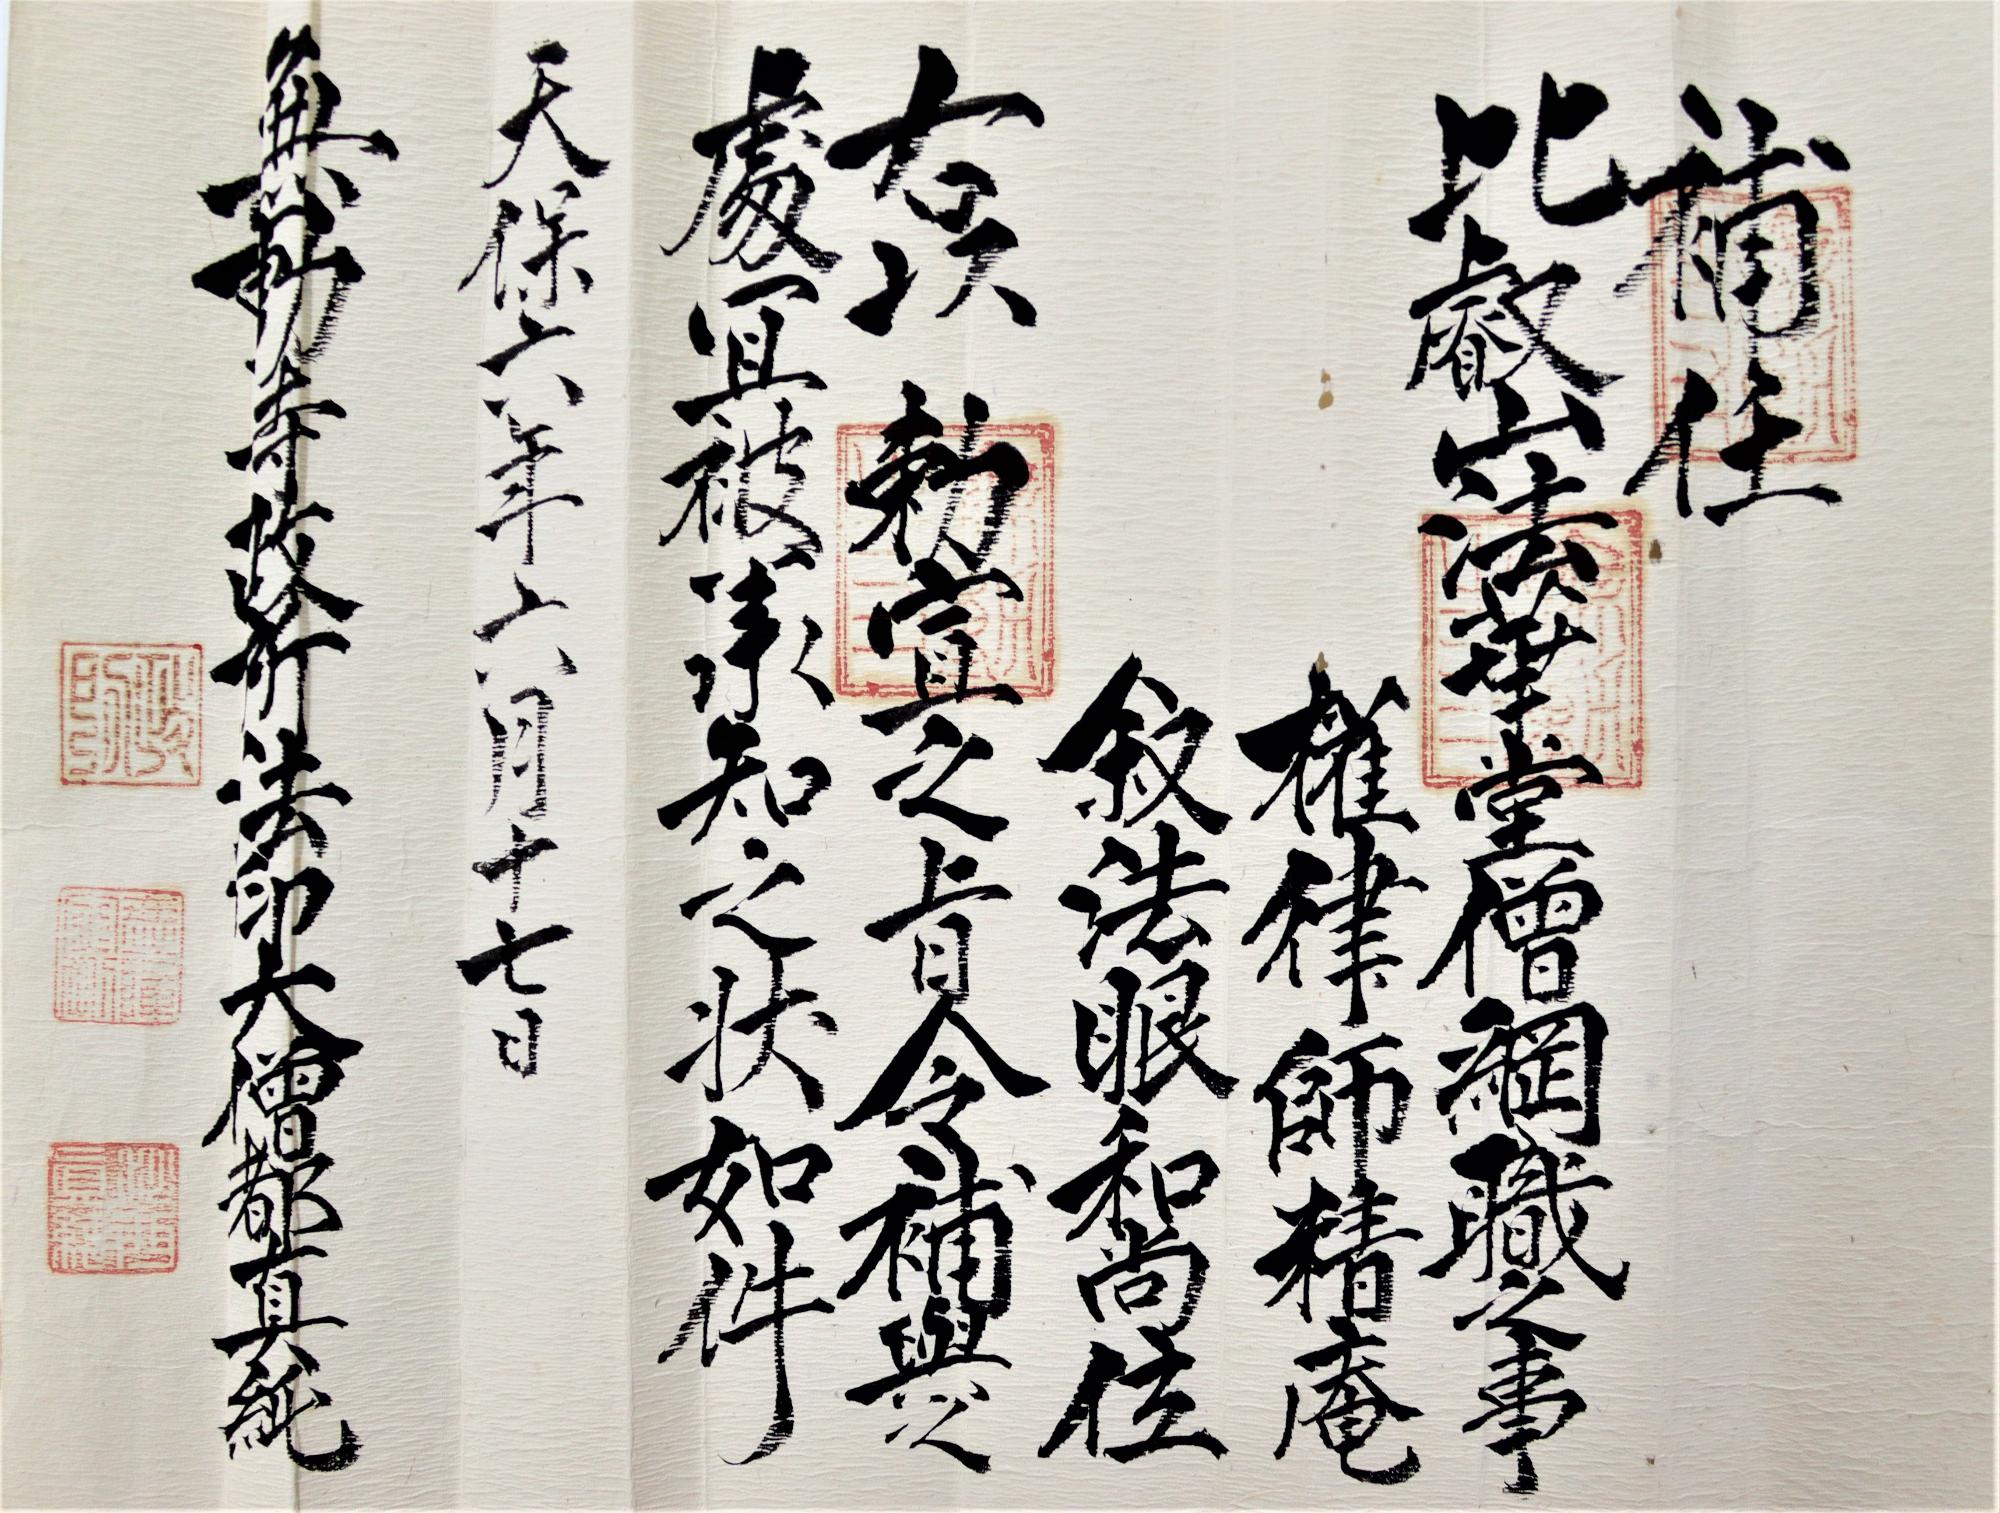 補任
比叡山法華堂僧綱職之事
權律師精庵
叙法眼和尚位
右以 勅宣之旨令補與之
處宜被承知之状如件
天保六年六月十七日
無動寺政所法印大僧都真純